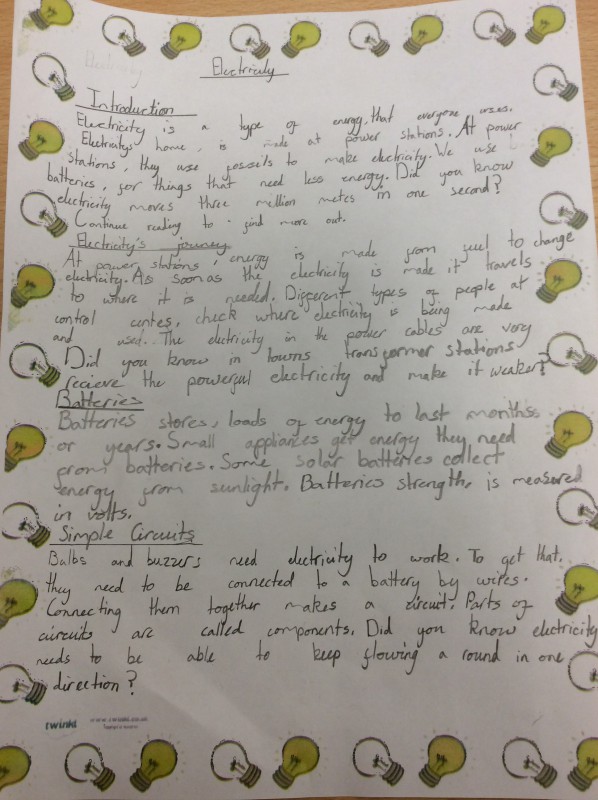 Electricity
Introduction
Electricity is a type of energy that everyone uses.
Electricitys home, is made at power stations. At power
stations, they use fossils to make electricity. We use
batteries, for things that need less energy. Did you know
electricity moves three million metres in one second?
Continue reading to find more out.
Electricity's journey
At power stations, energy is made from fuel to change
electricity. As soon as the electricity is made it travels
to where it is needed. Different types of people at
control centes, check where electricity is being made
and used. The electricity in the power cables are very
Did you know in towns transformer stations
recieve the powerful electricity and make it weaker?
Batteries
Batteries stores, loads of energy to last monthss
or years. Small appliances get energy they need
from batteries. Some solar batteries collect
energy from sunlight. Batteries strength, is measured
in volts.
Simple Circuits
Bulbs and buzzers need electricity to work. To get that,
they need to be connected to a battery by wires.
Connecting them together makes a circuit. Parts of
circuits are called components. Did you know electricity
needs to be able to keep flowing a round in one
direction?
twinkl www.twinkl.co.uk